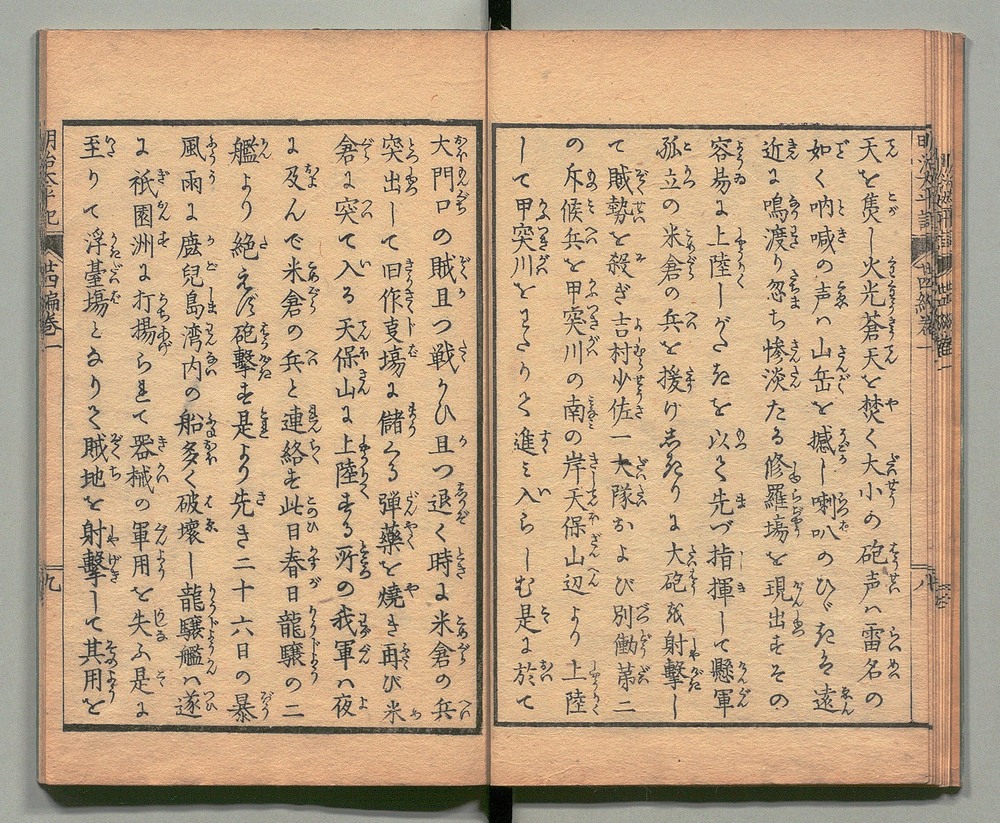 天を焦し火光蒼天を焚く大小の砲声ハ雷名の
如く吶喊の声ハ山岳を撼し喇叭のひゞきを遠
近に鳴渡り忽ち惨淡たる修羅塲を現出すその
容易に上陸しがたきを以て先づ指揮して懸軍
孤立の米倉の兵を援けしきりに大砲を射撃し
て賊勢を殺ぎ吉村少佐一大隊および別働第二
の斥候兵を甲突川の南の岸天保山辺より上陸
して甲突川をわたりて進み入らしむ是に於て
八
大門口の賊且つ戦かひ且つ退く時に米倉の兵
突出して旧作事塲に儲くる弾薬を焼き再び米
倉に突て入る天保山に上陸する所の我軍ハ夜
に及んで米倉の兵と連絡す此日春日龍驤の二
艦より絶えず砲撃す是より先き二十六日の暴
風雨に鹿児島湾内の船多く破壊し龍驤艦ハ遂
に祇園洲に打揚られて器械の軍用を失ふ是に
至りて浮臺塲となりて賊地を射撃して其用を
明治太平記 廿四編巻一
九